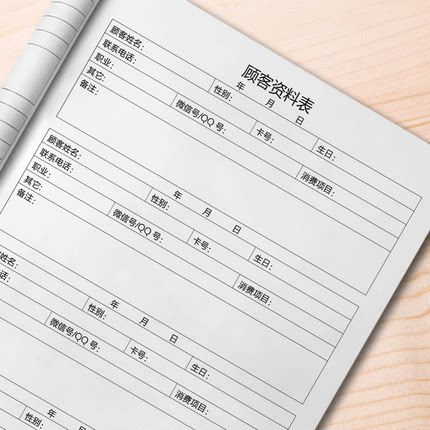 顾客资料表
年 月 日
顾客姓名： 性别： 生日：
联系电话： 微信号/QQ号： 卡号：
职业： 消费项目：
其它：
备注：
年 月 日
顾客姓名： 性别： 生日：
联系电话： 微信号/QQ号： 卡号：
职业： 消费项目：
其它：
备注：
年 月 日
姓名： 性别： 生日：
电话： 微信号/QQ号： 卡号：
消费项目：
年 月
性别：
微信号/QQ